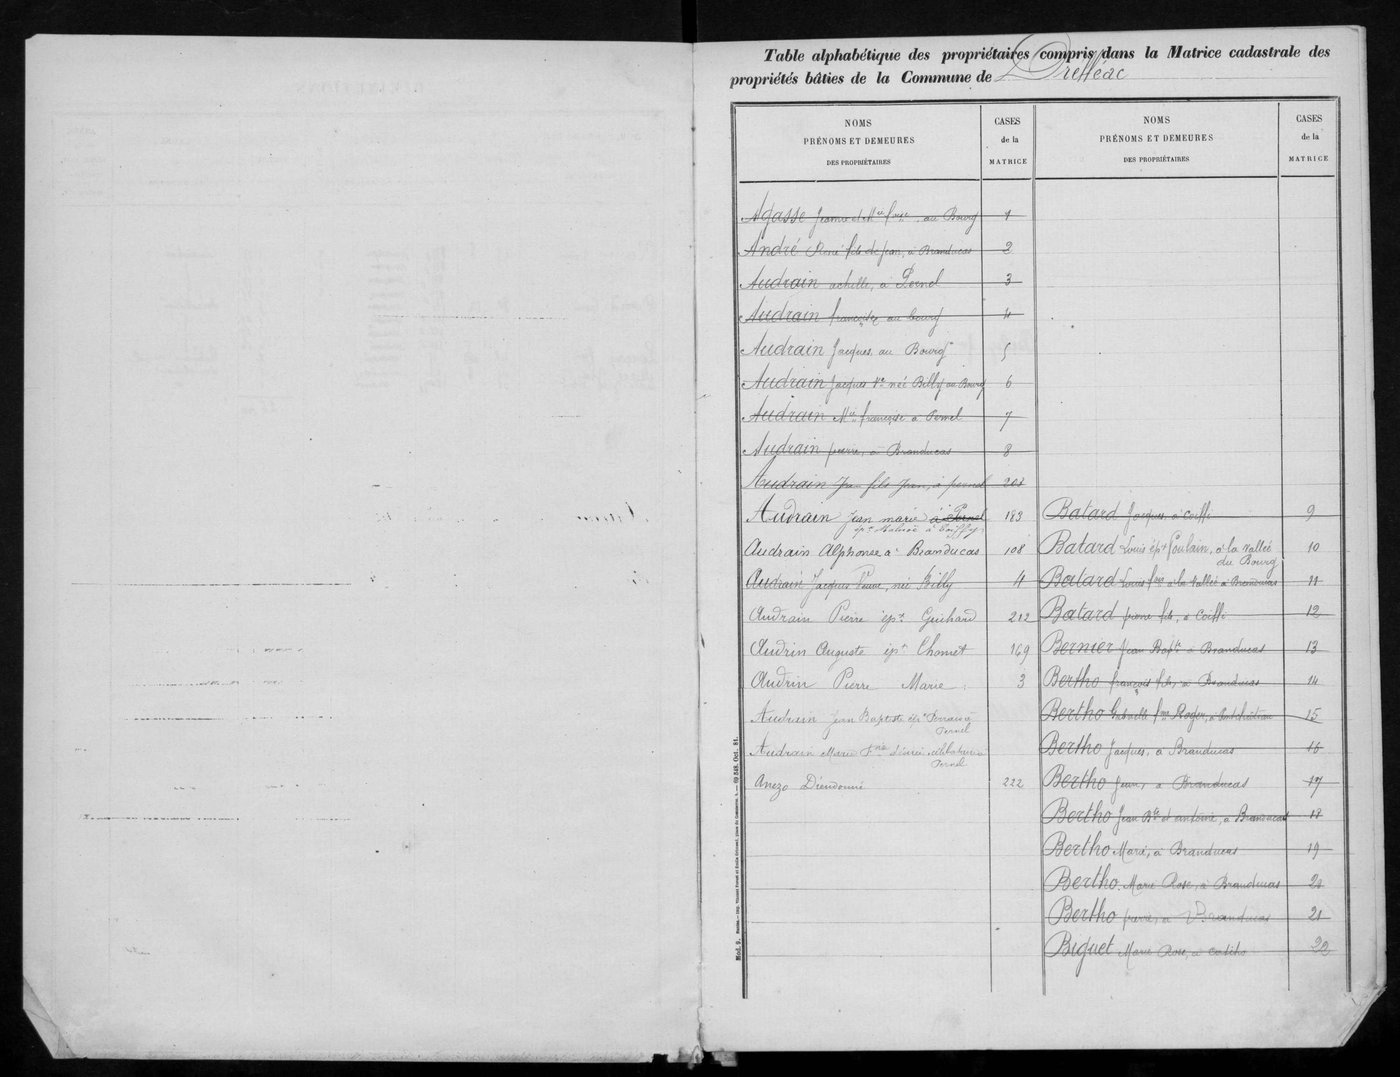 Table alphabétique des propriétaires compris dans la Matrice cadastrale des
propriétés bâties de la Commune de Drefféac
NOMS
PRÉNOMS ET DEMEURES
DES PROPRIÉTAIRES
CASES
de la
MATRICE
Agasse Jeanne et Mie , au Bourg 1
André René fils de Jean, à Branducas 2
Audrain achille, à Pernel 3
Audrain françoise au bourg 4
Audrain Jacques, au Bourg 5
Audrain Jacques Ve née Billy au Bourg 6
Audrain Mie françoise à Pernel 7
Audrain pierre, à Branducas 8
Audrain Jean fils Jean, à pernel 201
Audrain Jean marie à Pernel 183
épx à Coiffy
Audrain Alphonse à Branducas 108
Audrain Jacques Veuve, née Billy 4
Audrain Pierre épx Guihard 212
Audrin Auguste épx Chomet 169
Audrin Pierre Marie 3
Audrain Jean Baptiste épx Perraud
Pernel
Audrain Marie célibataire
Pernel
Anezo Dieudonné 222
NOMS
PRÉNOMS ET DEMEURES
DES PROPRIÉTAIRES
CASES
de la
MATRICE
Batard Jacques, à Coiffi 9
Batard Louis épx Poulain, à la Vallée 10
du Bourg
Batard Louis à la Vallée à Branducas 11
Batard pierre fils, à Coiffi 12
Bernier Jean Bapte à Branducas 13
Bertho françois fils, à Branducas 14
Bertho Gabrielle Roger, à 15
Bertho Jacques, à Branducas 16
Bertho Jean, à Branducas 17
Bertho Jean Bte et antoine, à Branducas 18
Bertho Marie, à Branducas 19
Bertho Marie Rose, à Branducas 20
Bertho pierre, à Branducas 21
Biguet Marie Rose, à 22
Mod. 9.